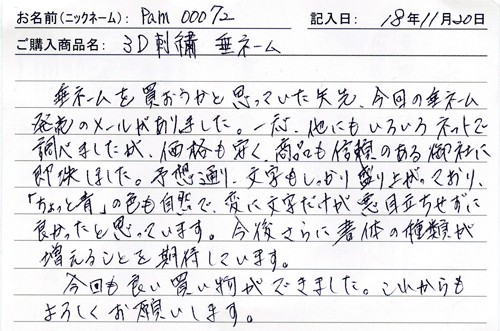 お名前(ニックネーム): Pam 00072 記入日: 18年11月20日
ご購入商品名: 3D刺繍 垂ネーム
垂ネームを買おうかと思っていた矢先、今回の垂ネーム
発売のメールがありました。一応、他にもいろいろネットで
調べましたが、価格も安く、商品も信頼のある御社に
即決しました。予想通り、文字もしっかり盛り上がっており、
「ちょっと青」の色も自然で、変に文字だけが悪目立ちせずに
良かったと思っています。今後さらに書体の種類が
増えることを期待しています。
今回も良い買い物ができました。これからも
よろしくお願いします。